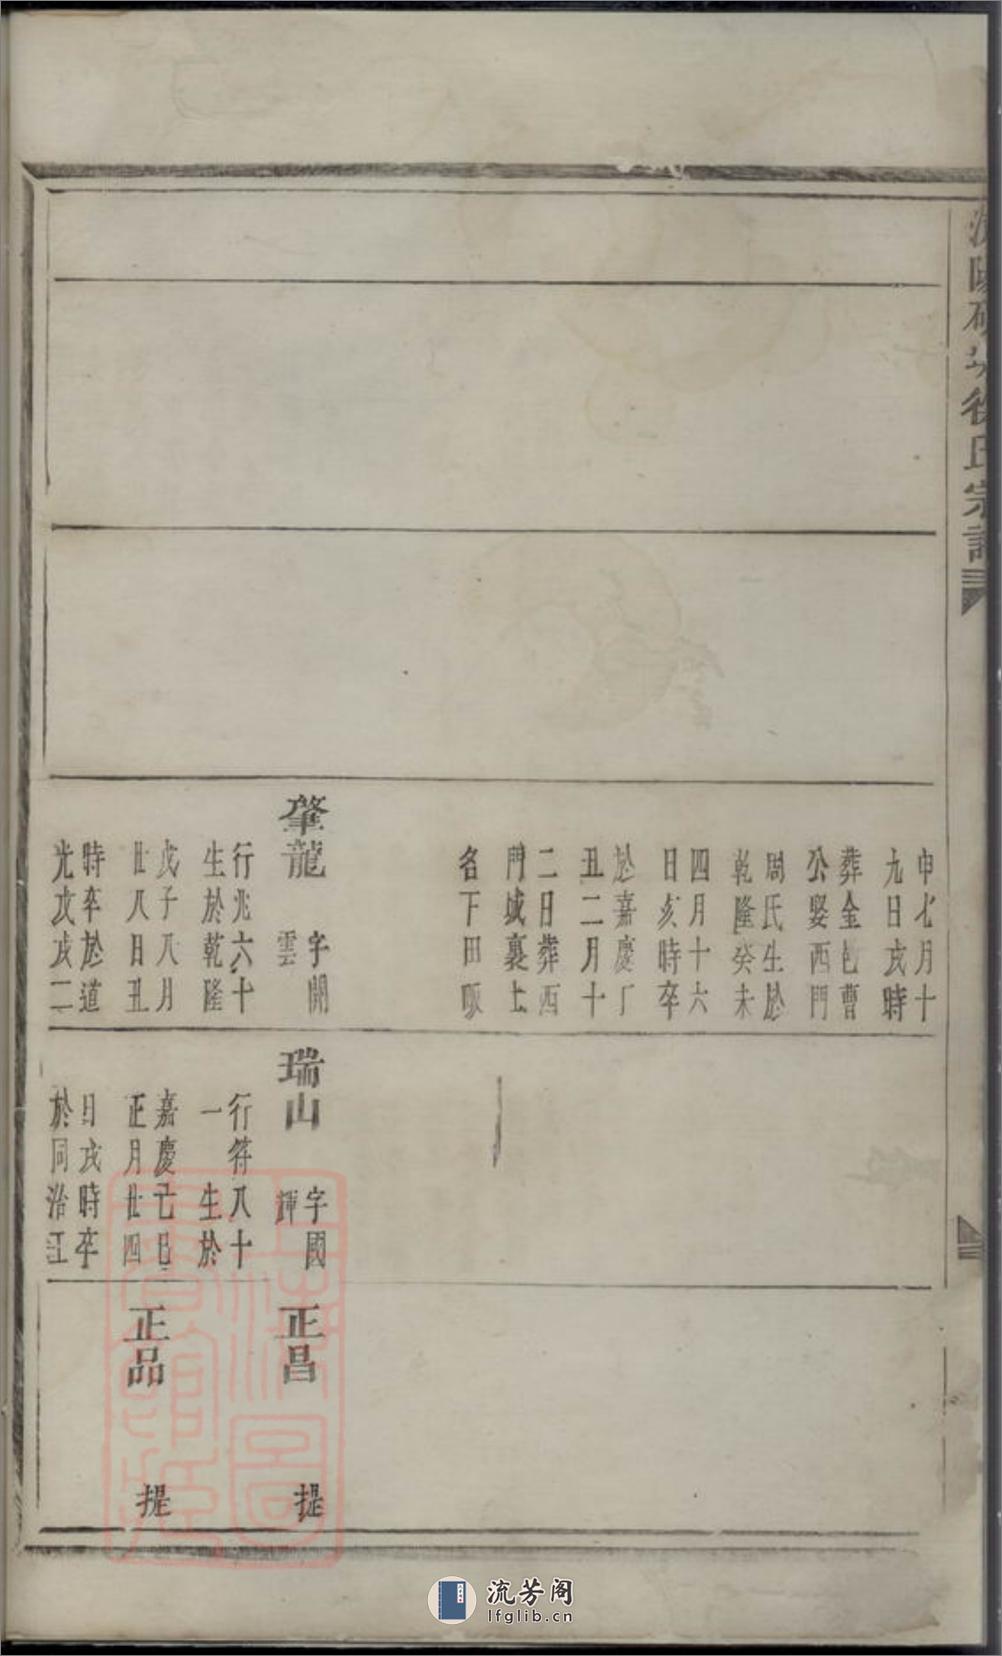 徐氏宗譜
申七月十
九日戌時
葬金包曹
公娶西門
周氏生於
乾隆癸未
四月十六
日亥時卒
於嘉慶丁
丑二月十
二日葬西
門城裏土
名下田畈
肇龍 字開
雲
行兆六十
生於乾隆
戊子八月
廿八日丑
時卒於道
光戊戌二
瑞山 字國
輝
行符八十
一 生於
嘉慶己巳
正月廿四
日戌時卒
於同治江
正昌 提
正品 提
上海圖
流芳阁
lfglib.cn